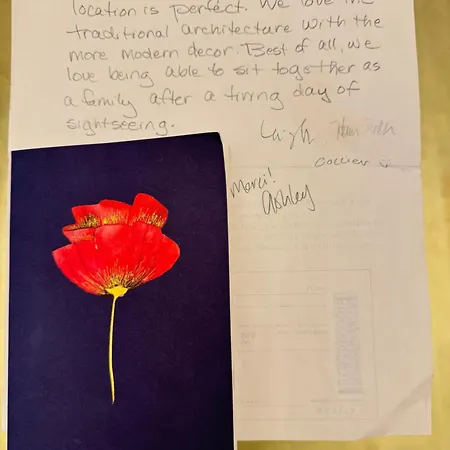 location is perfect. We love the
traditional architecture with the
more modern decor. Best of all, we
love being able to sit together as
a family after a tiring day of
sightseeing.
Leigh
Collier
Merci!
Ashley